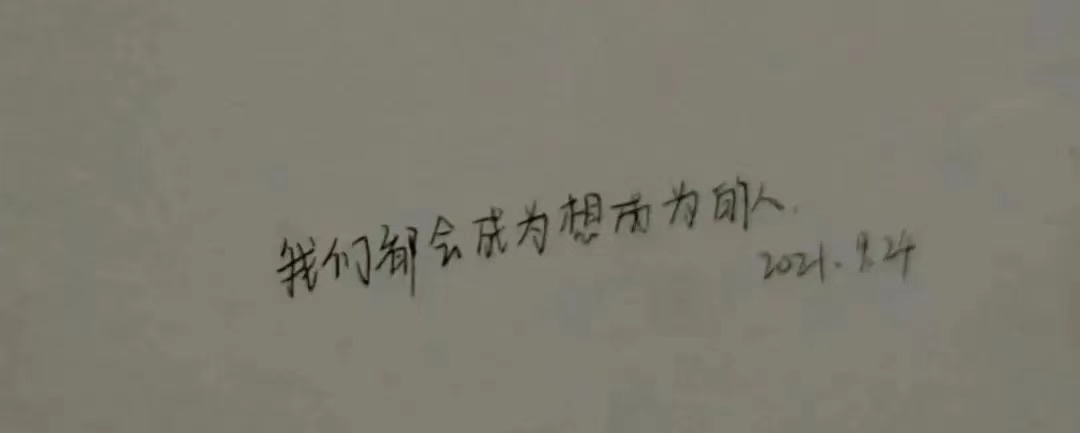 我们都会成为想成为的人.
2021.9.24